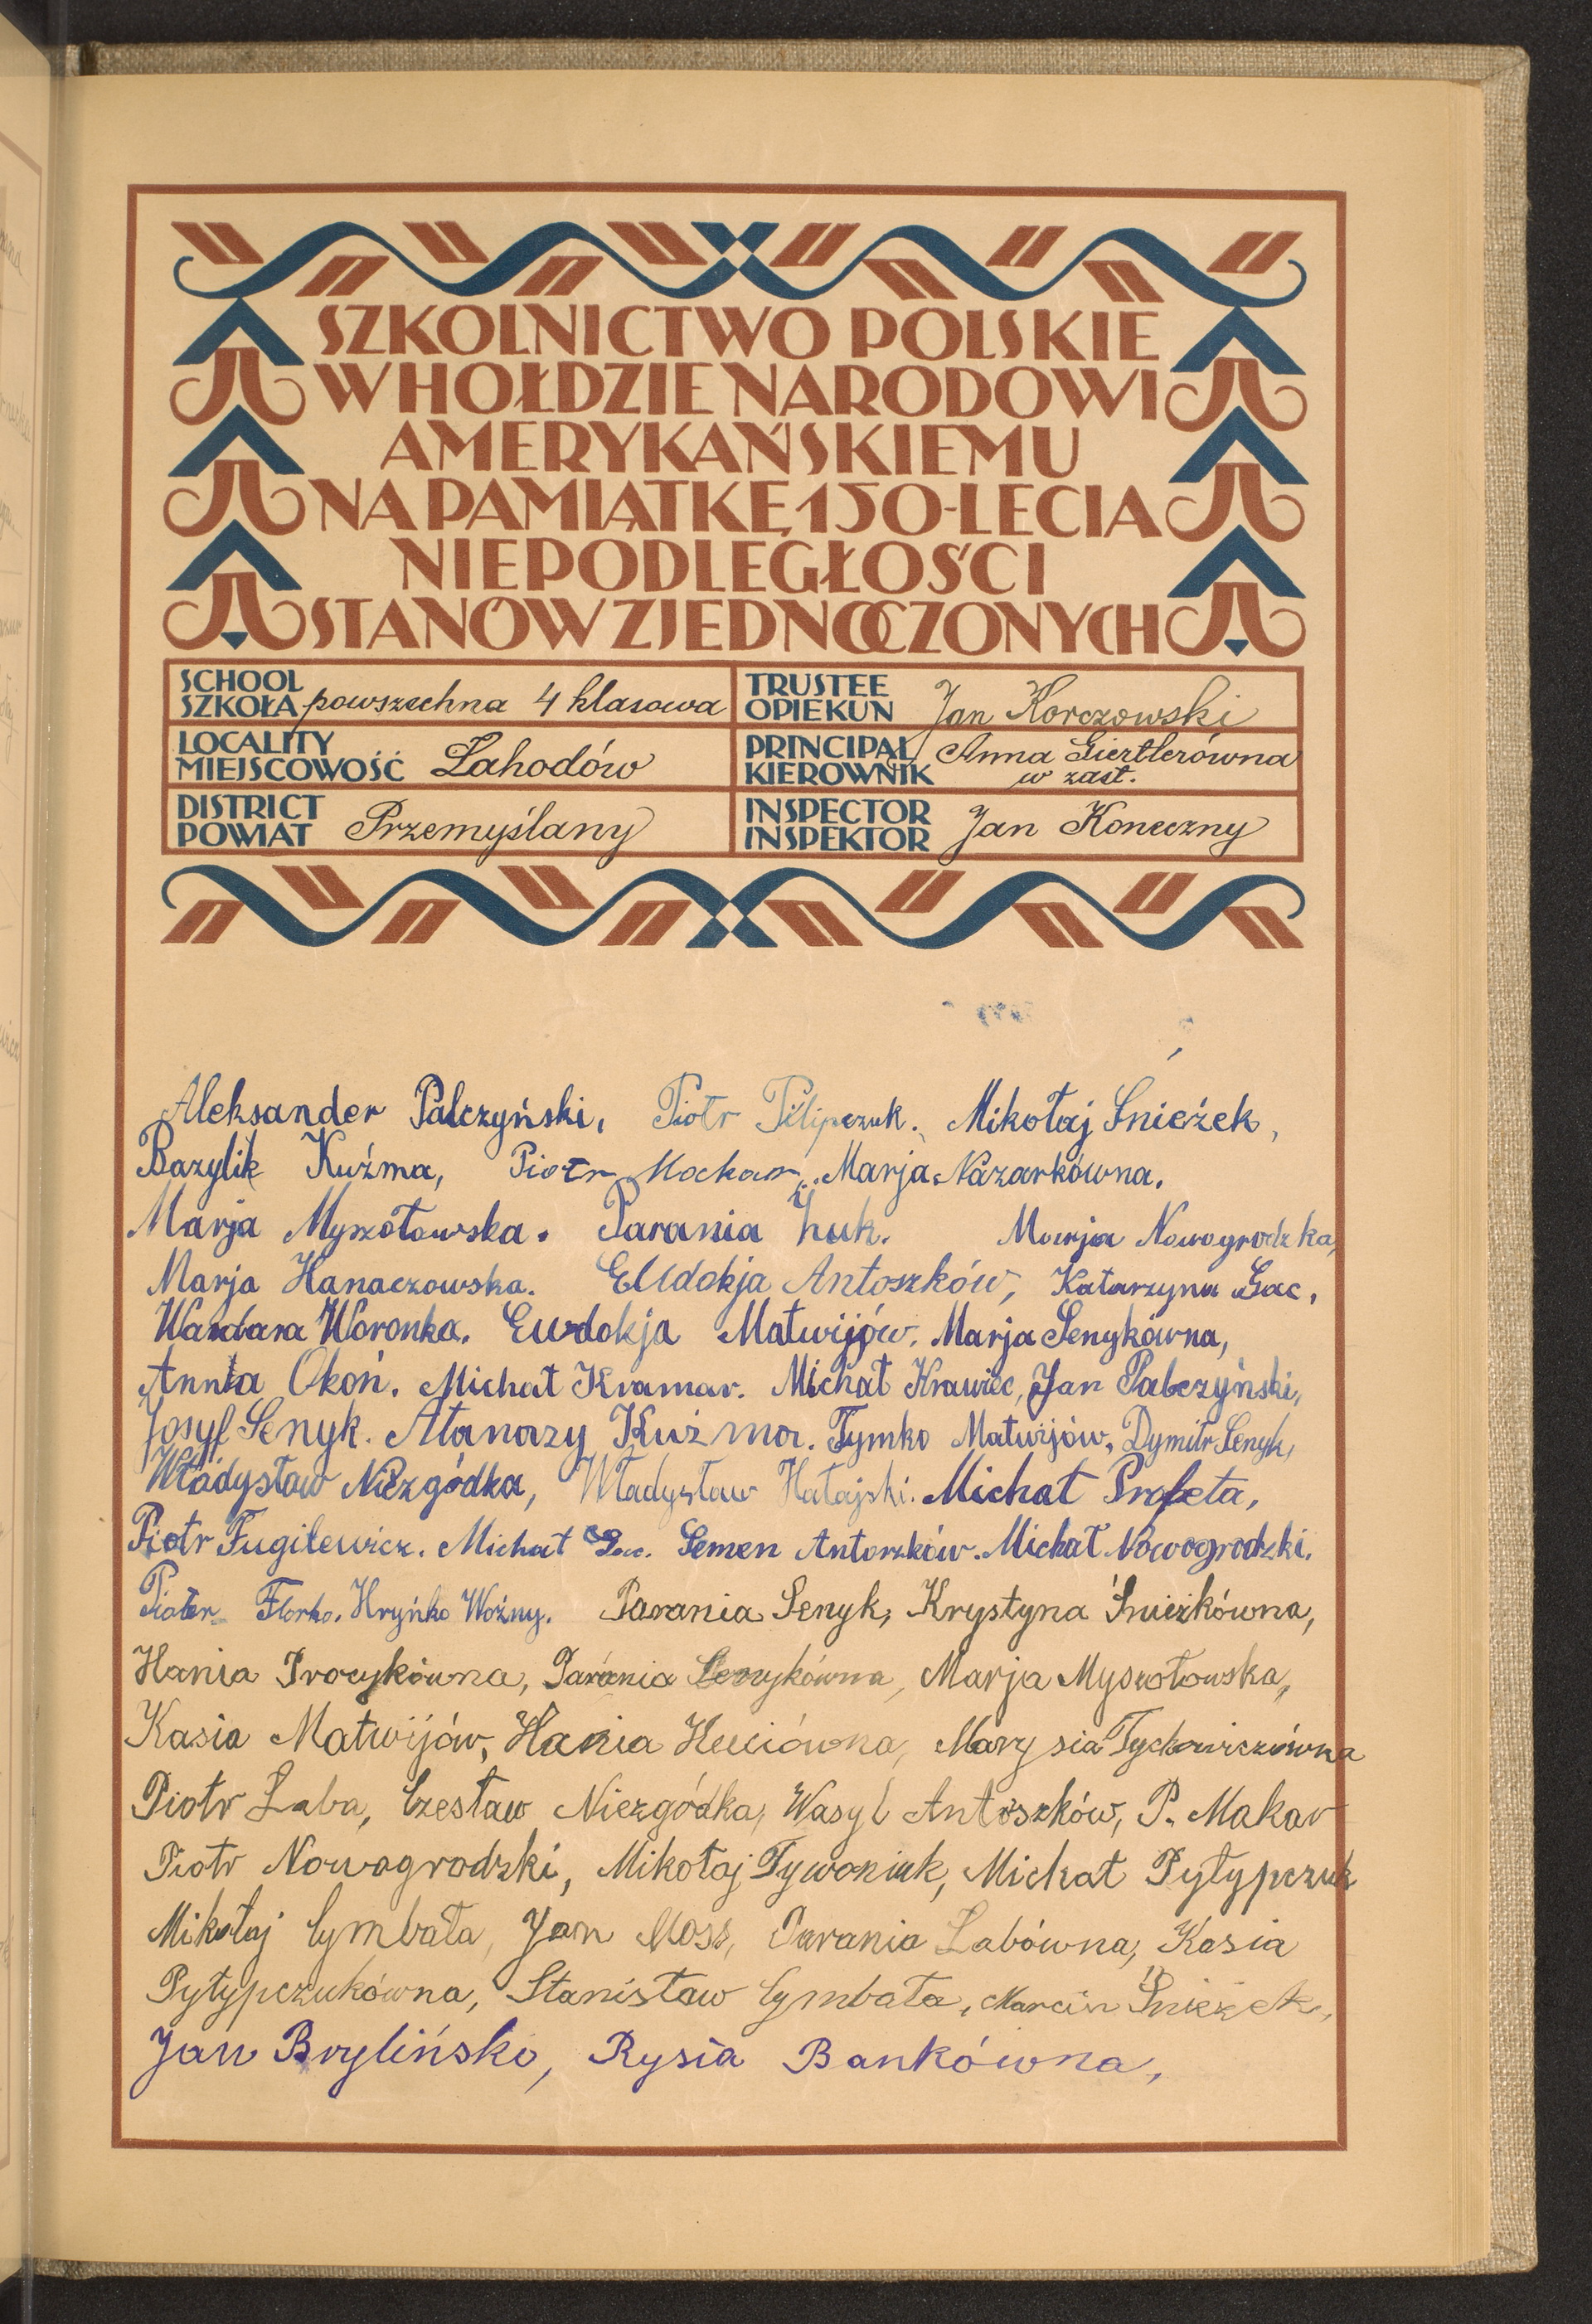 SZKOLNICTWO POLSKIE
W HOŁDZIE NARODOWI
AMERYKAŃSKIEMU
NA PAMIĄTKĘ 150-LECIA
NIEPODLEGŁOŚCI
STANÓW ZJEDNOCZONYCH
SCHOOL
SZKOŁA powszechna 4 klasowa
TRUSTEE
OPIEKUN Jan Korczowski
LOCALITY
MIEJSCOWOŚĆ Lahodów
PRINCIPAL
KIEROWNIK Anna Giertlerówna
w zast.
DISTRICT
POWIAT Przemyślany
INSPECTOR
INSPEKTOR Jan Koneczny
Aleksander Palczyński, Piotr Pilipczuk. Mikołaj Śnieżek,
Bazylik Kuźma, Piotr Marja Nazarkówna.
Marja Myszołowska. Parania Żuk. Marja Nowogrodzka,
Marja Hanaczowska. Eudokja Antoszków, Katarzyna Gac,
Warbara Woronka. Ewdokja Matwijów. Marja Senykówna,
Anna Okoń. Michał Kramar. Michał Krawiec, Jan Palczyński,
Josyf Senyk. Atanazy Kuźma. Tymko Matwijów, Dymitr Senyk,
Władysław Niezgódka, Władysław Hałajski. Michał Profeta,
Piotr Fugilewicz. Michał Semen Antoszków. Michał Nowogrodzki.
Piotr Florko. Hryńko Woźny. Parania Senyk, Krystyna Śnieżkówna,
Hania Procykówna, Parania Senykówna, Marja Myszołowska,
Kasia Matwijów, Hania Huciówna, Marysia Tychowiczówna
Piotr Łaba, Czesław Niezgódka, Wasyl Antoszków, P. Makar
Piotr Nowogrodzki, Mikołaj Tywoniuk, Michał Pyłypczuk
Mikołaj Cymbała, Jan Moss, Parania Łabówna, Kasia
Pyłypczukówna, Stanisław Cymbała, Marcin Śnieżek,
Jan Bryliński, Rysia Bankówna,